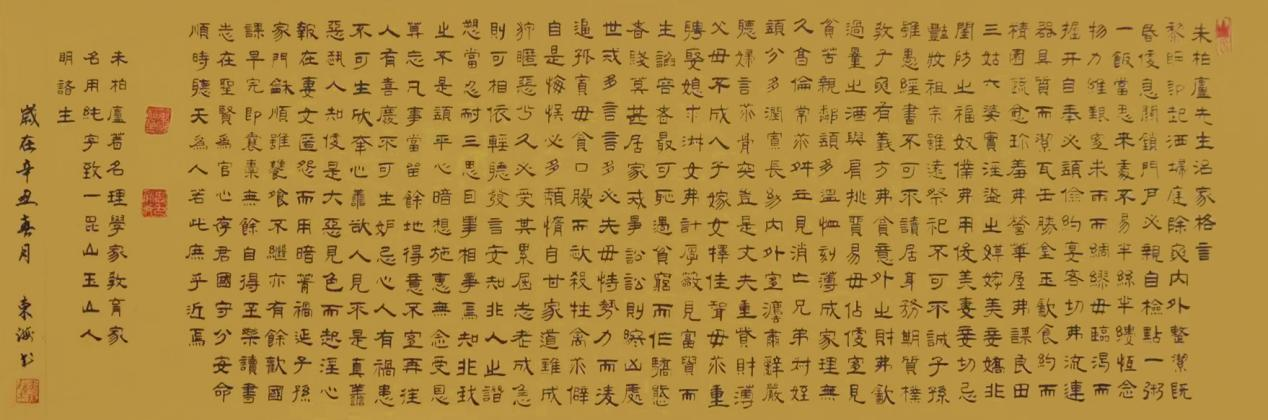 朱柏廬先生治家格言
黎明即起洒掃庭除要内外整潔既
昏便息關鎖門戶必親自檢點一粥
一飯當思來處不易半絲半縷恆念
物力維艱宜未雨而綢繆毋臨渴而
掘井自奉必須儉約宴客切弗流連
器具質而潔瓦缶勝金玉飲食約而
精園蔬愈珍羞弗營華屋弗謀良田
三姑六婆實淫盜之媒婢美妾嬌非
閨房之福奴僕弗用俊美妻妾切忌
豔妝祖宗雖遠祭祀不可不誠子孫
雖愚經書不可不讀居身務期質樸
教子要有義方弗貪意外之財弗飲
過量之酒與肩挑貿易毋佔便宜見
貧苦親鄰須多溫恤刻薄成家理無
久享倫常乖舛立見消亡兄弟叔姪
須分多潤寡長幼内外宜灋肅辭嚴
聽婦言乖骨肉豈是丈夫重貲財薄
父母不成人子嫁女擇佳婿毋索重
聘娶媳求淑女弗計厚奩見富貴而
生諂容者最可恥遇貧窮而作驕態
者賤莫甚居家戒爭訟訟則終凶處
世戒多言言多必失毋恃勢力而凌
逼孤寡毋貪口腹而恣殺牲禽乖僻
自是悔悞必多頹惰自甘家道難成
狎暱惡少久必受其累屈志老成急
則可相依輕聽發言安知非人之譖
愬當忍耐三思因事相爭焉知非我
之不是須平心暗想施惠無念受恩
莫忘凡事當留餘地得意不宜再往
人有喜慶不可生妒忌心人有禍患
不可生欣幸心善欲人見不是真善
惡恐人知便是大惡見色而起淫心
報在妻女匿怨而用暗箭禍延子孫
家門龢順雖饔飧不繼亦有餘歡國
課早完即囊橐無餘自得至樂讀書
志在聖賢為官心存君國守分安命
順時聽天為人若此庶乎近焉
朱柏廬著名理學家教育家
名用純字致一昆山玉山人
明諸生
歲在辛丑春月 東海書